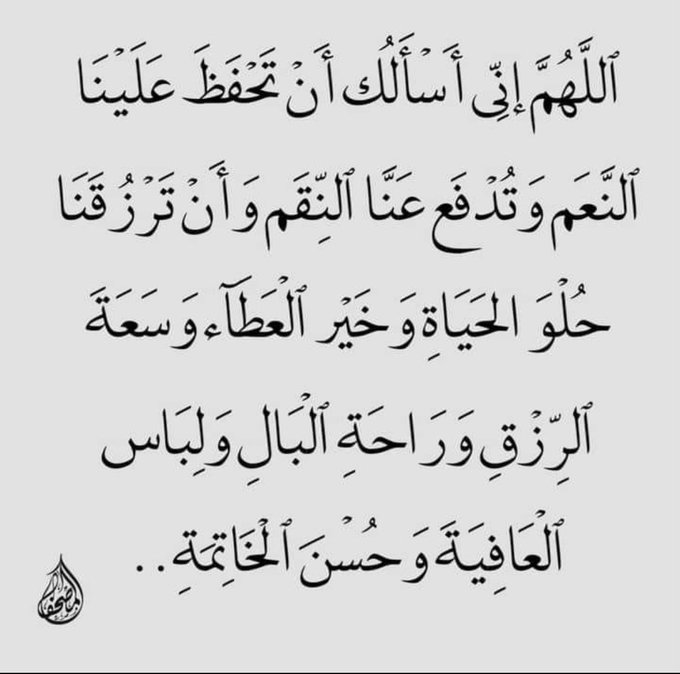 ٱللَّهُمَّ إنِّى أَسْأَلُك أَنْ تَحْفَظَ عَلَيْنَا
ٱلنَّعَم وَتُدْفَع عَنَّا ٱلنِّقَم وَأَنْ تَرْزُقَنَا
حُلْوَ الحَيَاةِ وَخَيْر ٱلْعَطَآء وَسَعَةَ
ٱلرِّزْقِ وَرَاحَةِ ٱلْبَالِ وَلِبَاس
ٱلْعَافِيَةَ وَحُسْنَ ٱلْخَاتِمَةِ..